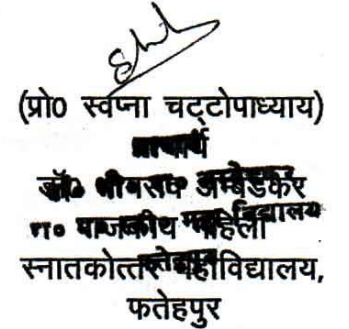 (प्रो0 स्वप्ना चट्टोपाध्याय)
प्राचार्य
डॉ0 भीमराव अम्बेडकर
राजकीय महिला
स्नातकोत्तर महाविद्यालय,
फतेहपुर